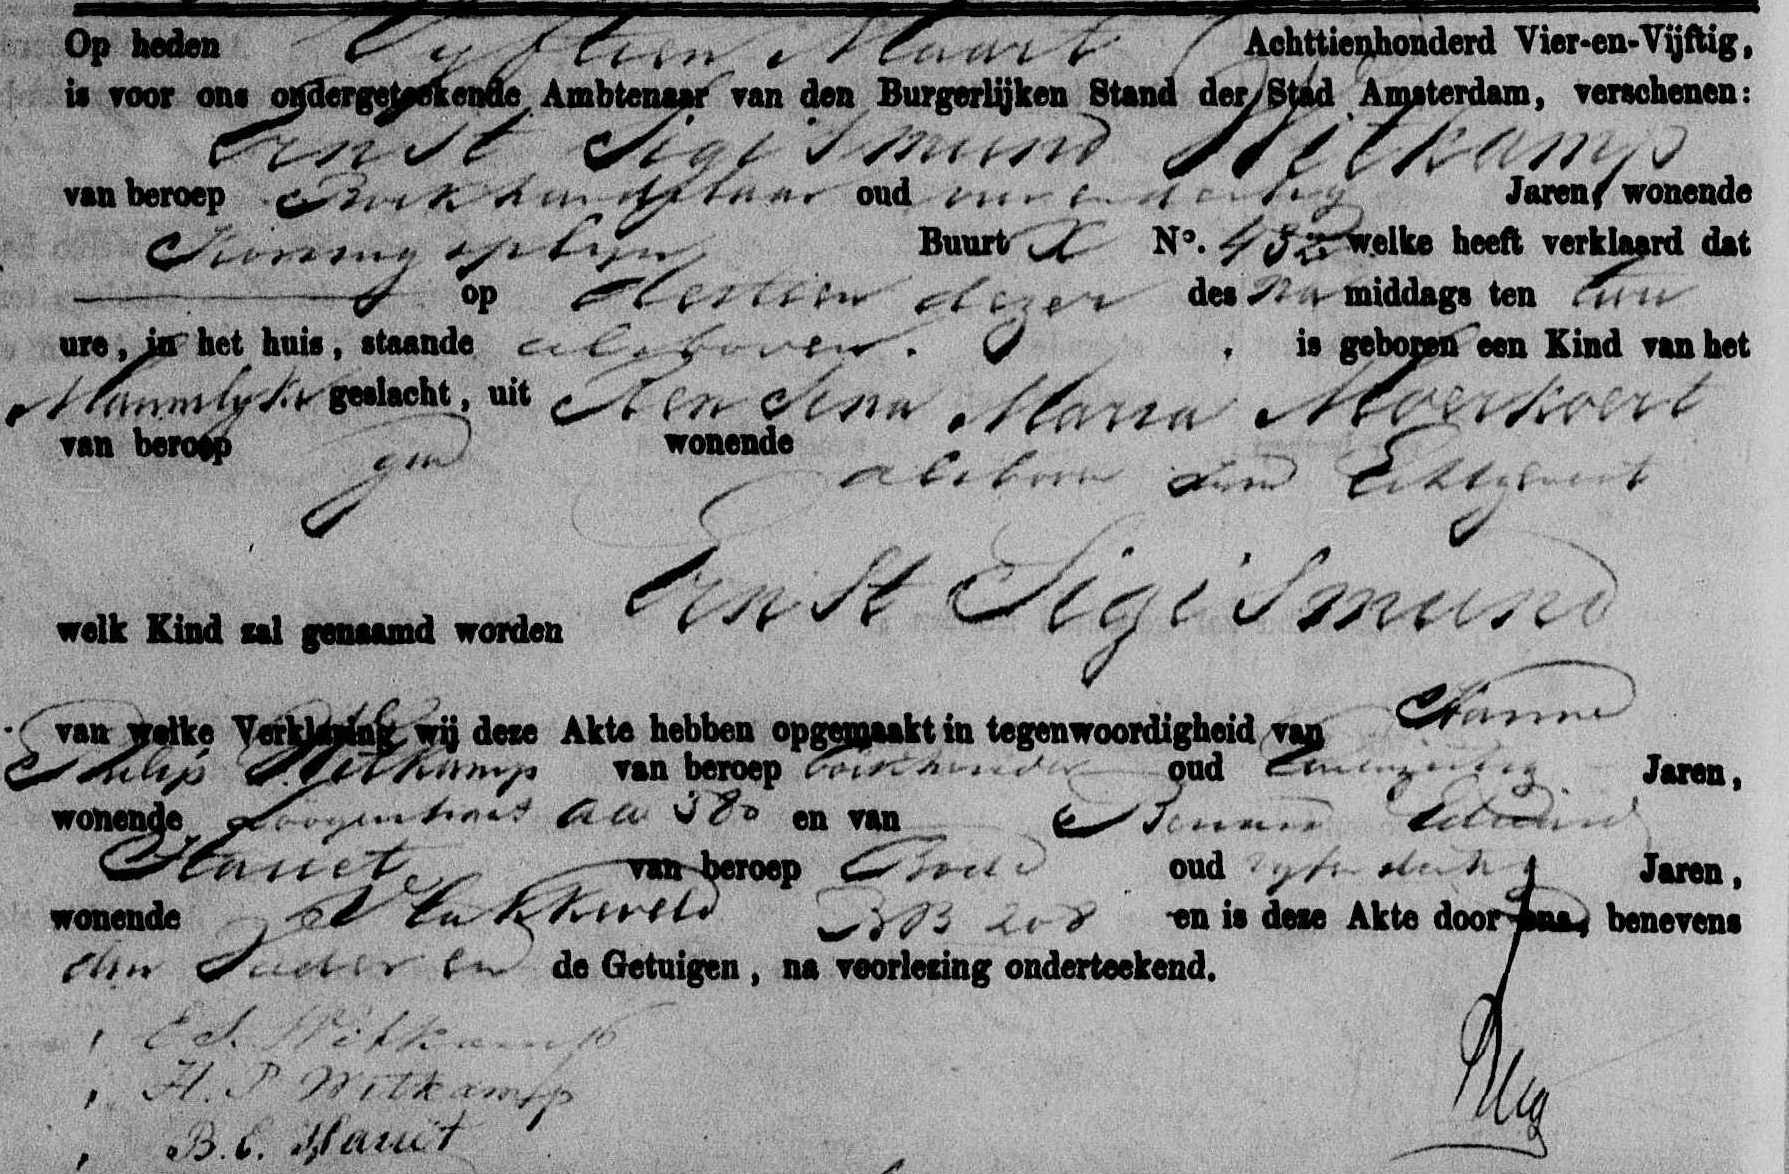 Op heden Vyftien Maart Achttienhonderd Vier-en-Vijftig,
is voor ons ondergeteekende Ambtenaar van den Burgerlijken Stand der Stad Amsterdam, verschenen:
Ernst Sigismund Witkamp
van beroep Boekhandelaar oud vierendertig Jaren, wonende
Koningsplyn Buurt X No. 432 welke heeft verklaard dat
op dertien dezer des na middags ten twee
ure, in het huis, staande alsboven. is geboren een Kind van het
Mannelyke geslacht, uit Rendina Maria Moerkoert
van beroep geen wonende
alsboven zyne Echtgenoot
Ernst Sigismund
welk Kind zal genaamd worden
van welke Verklaring wij deze Akte hebben opgemaakt in tegenwoordigheid van
Philip Witkamp van beroep oud Jaren,
wonende aa 380 en van
Hauet van beroep Bode oud vyfendertig Jaren,
wonende Vlakkeveld BB 208 en is deze Akte door ons, benevens
den Vader en de Getuigen, na voorlezing onderteekend.
E S. Witkamp
H. P Witkamp
B. E. Hauet